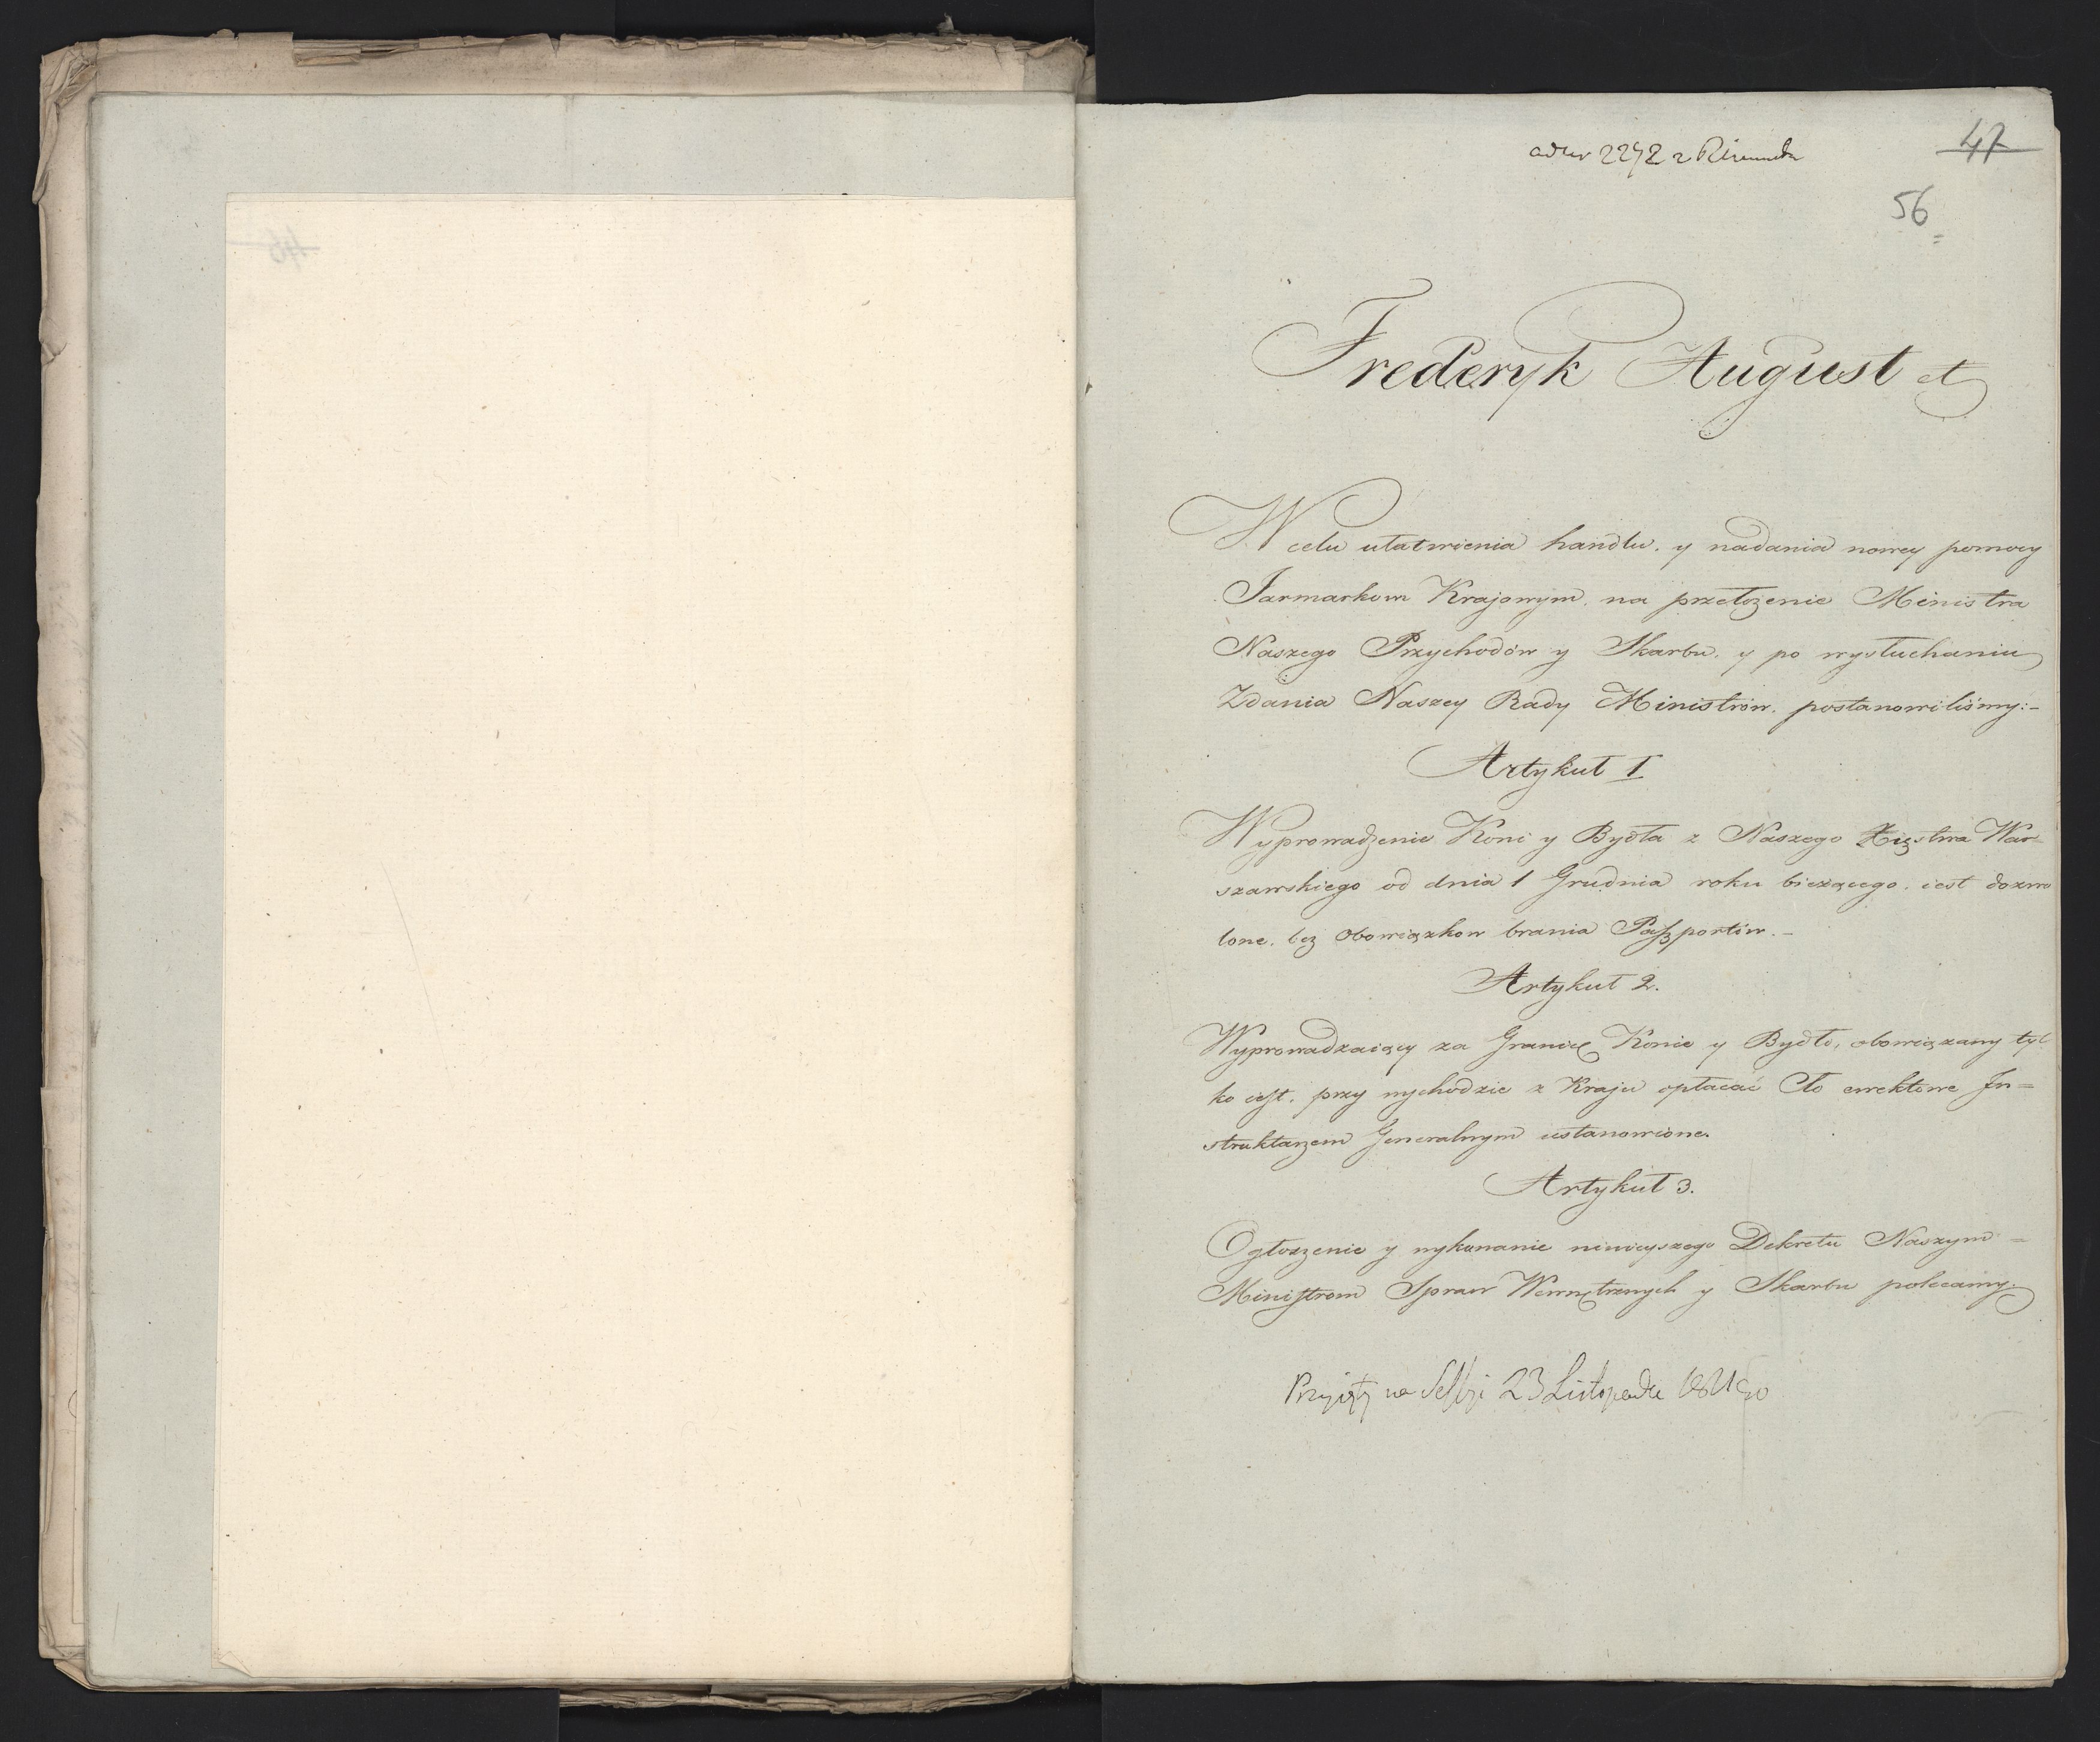 47
56
Frederyk August et
W celu ułatwienia handlu, y nadania nowey pomocy
Jarmarkom Krajowym, na przełożenie Ministra
Naszego Przychodów y Skarbu, y po wysłuchaniu
Zdania Naszey Rady Ministrów, postanowiliśmy:-
Artykuł 1
Wyprowadzenie Koni y Bydła z Naszego Xięstwa War=
szawskiego od dnia 1 Grudnia roku bieżącego, iest dozwo
lone, bez Obowiązkow brania Paszportów.-
Artykuł 2.
Wyprowadzaiący za Granicę Konie y Bydło, obowiązany tyl
ko iest, przy wychodzie z Kraju opłacać Cło ewektowe In=
struktarzem Generalnym ustanowione.
Artykuł 3.
Ogłoszenie y wykonanie ninieyszego Dekretu Naszym=
Ministrom Spraw Wewnętrznych y Skarbu polecamy.
Przyięty na Sessyi 23 Listopada